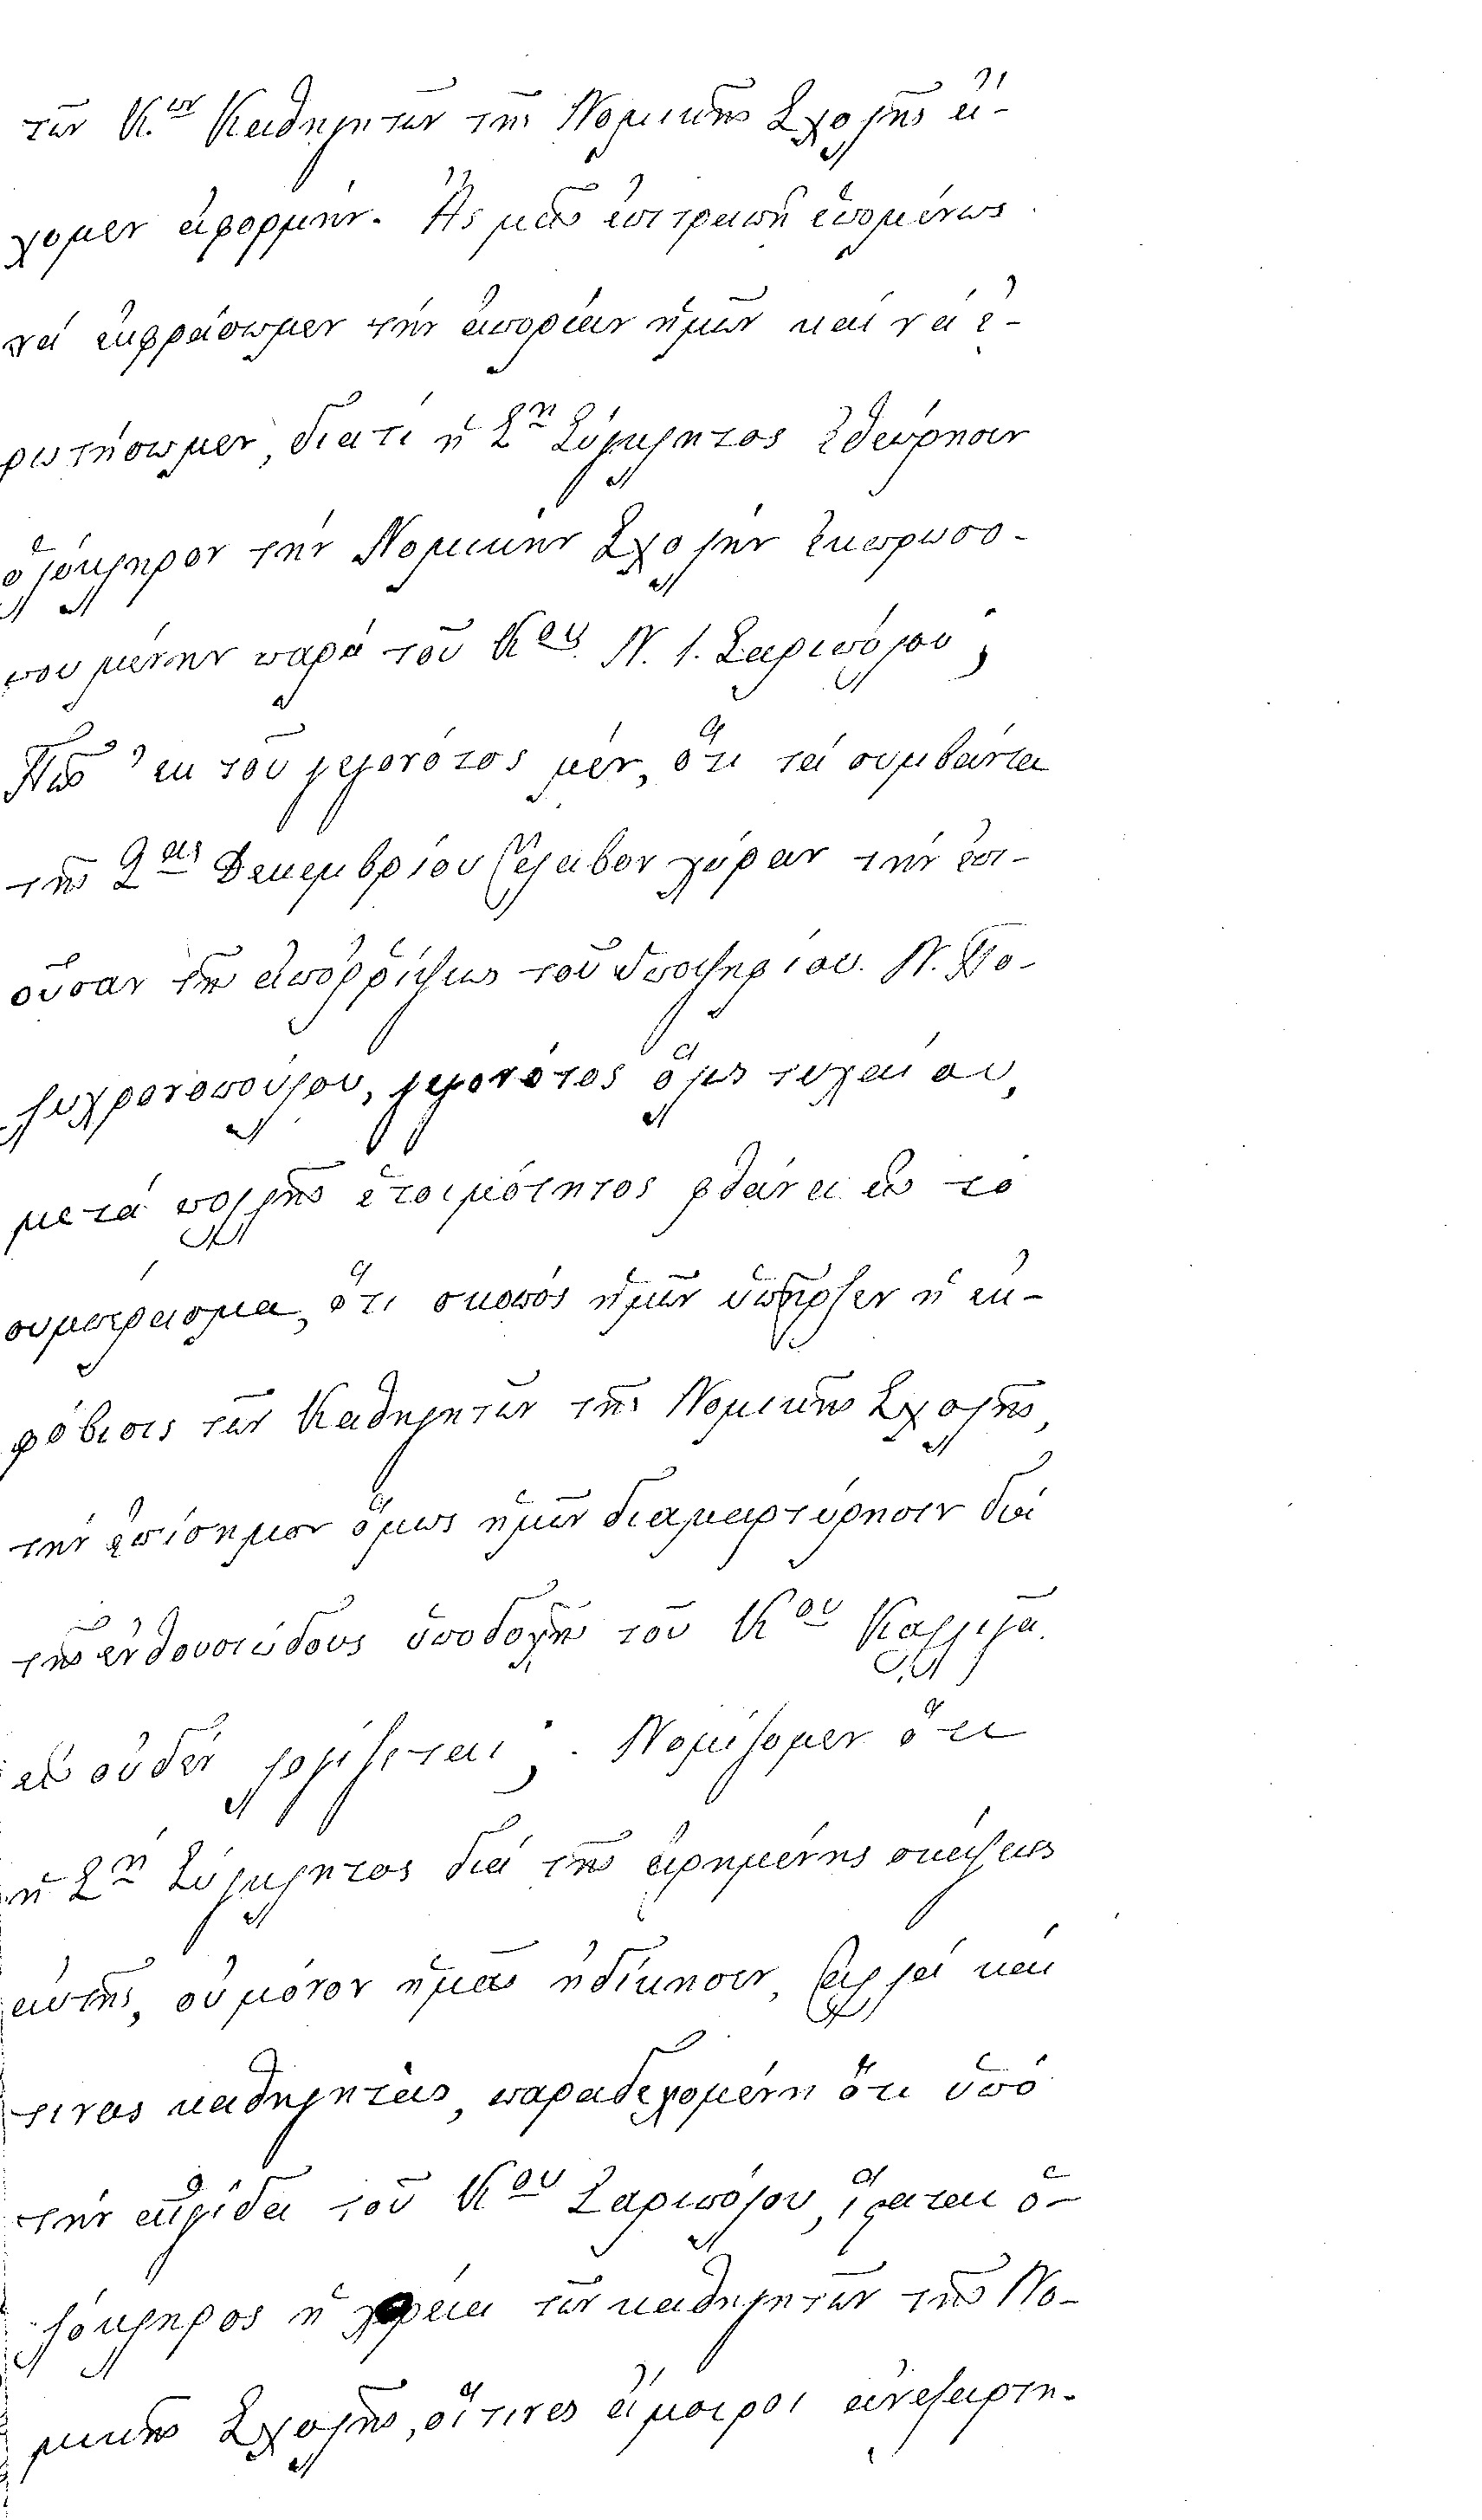 τῶν Κ.ων Καθηγητῶν τῆς Νομικῆς Σχολῆς εἴ-
χομεν ἀφορμήν. Ἄς μᾶς ἐπιτραπῇ ἑπομένως
νά ἐκφράσωμεν τήν ἀπορίαν ἡμῶν καί νά ἐ-
ρωτήσωμεν, διατί ἡ Σ.η Σύγκλητος ἐθεώρησεν
ὁλόκληρον τήν Νομικήν Σχολήν ἐκπροσω-
πουμένην παρά τοῦ Κου Ν. Ι. Σαριπόλου;
Πῶς ἐκ τοῦ γεγονότος μέν, ὅτι τά συμβάντα
τῆς 9ης Δεκεμβρίου ἔλαβον χώραν τήν ἐπι-
οῦσαν τῆς ἀποῤῥίψεως τοῦ ὑποψηφίου. Ν. Πο-
λυχρονοπούλου, γεγονότος ὅλως τυχαίου,
μετά πολλῆς ἑτοιμότητος φθάνει εἰς τό
συμπέρασμα, ὅτι σκοπός ἡμῶν ὑπῆρξεν ἡ ἐκ-
φόβισις τῶν Καθηγητῶν τῆς Νομικῆς Σχολῆς,
τήν ἐπίσημον ὅμως ἡμῶν διαμαρτύρησιν διά
τῆς ἐνθουσιώδους ὑποδοχῆς τοῦ Κου Καλλιγᾶ.
εἰς οὐδέν λογίζεται; . Νομίζομεν ὅτι
ἡ Σ.η Σύγκλητος διά τῆς εἰρημένης σκέψεως
αὐτῆς, οὐ μόνον ἡμᾶς ἠδίκησεν, ἀλλά καί
τινας καθηγητάς, παραδεχομένη ὅτι ὑπό
τήν αἰγίδα τοῦ Κου Σαριπόλου, ἵσταται ὁ-
λόκληρος ἡ χορεία τῶν καθηγητῶν τῆς Νο-
μικῆς Σχολῆς, οἵτινες ἄμοιροι ἀνεξαρτη-